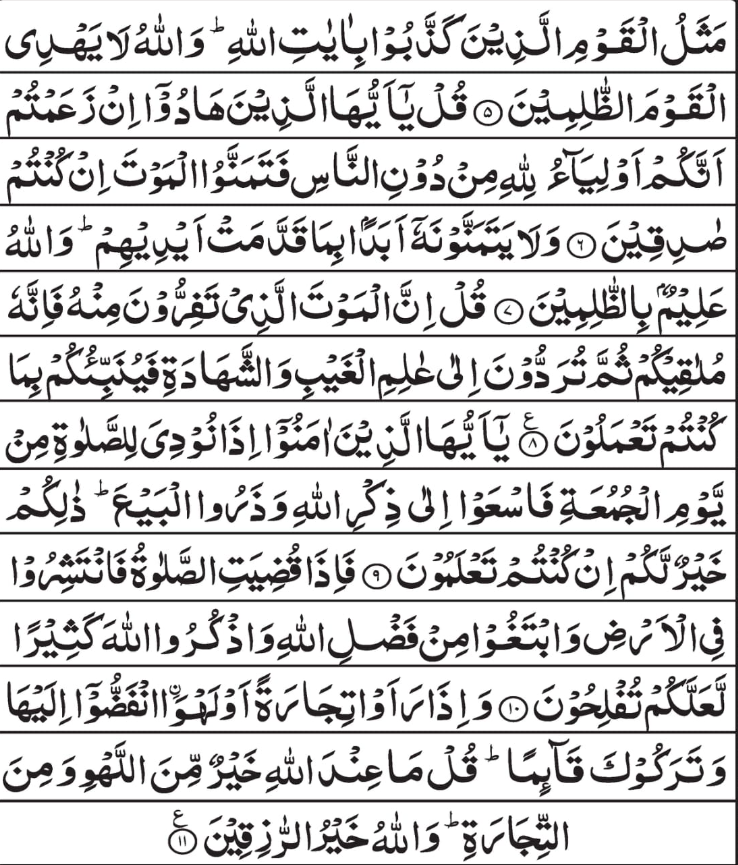 مَثَلُ الْقَوْمِ الَّذِيْنَ كَذَّبُوْا بِاٰيٰتِ اللّٰهِ ؕ وَاللّٰهُ لَا يَهْدِى
الْقَوْمَ الظّٰلِمِيْنَ ۝۵ قُلْ يٰۤاَيُّهَا الَّذِيْنَ هَادُوْۤا اِنْ زَعَمْتُمْ
اَنَّكُمْ اَوْلِيَآءُ لِلّٰهِ مِنْ دُوْنِ النَّاسِ فَتَمَنَّوُا الْمَوْتَ اِنْ كُنْتُمْ
صٰدِقِيْنَ ۝۶ وَلَا يَتَمَنَّوْنَهٗۤ اَبَدًۢا بِمَا قَدَّمَتْ اَيْدِيْهِمْ ؕ وَاللّٰهُ
عَلِيْمٌۢ بِالظّٰلِمِيْنَ ۝۷ قُلْ اِنَّ الْمَوْتَ الَّذِىْ تَفِرُّوْنَ مِنْهُ فَاِنَّهٗ
مُلٰقِيْكُمْ ثُمَّ تُرَدُّوْنَ اِلٰى عٰلِمِ الْغَيْبِ وَالشَّهَادَةِ فَيُنَبِّئُكُمْ بِمَا
كُنْتُمْ تَعْمَلُوْنَ ۝۸ ع يٰۤاَيُّهَا الَّذِيْنَ اٰمَنُوْۤا اِذَا نُوْدِىَ لِلصَّلٰوةِ مِنْ
يَّوْمِ الْجُمُعَةِ فَاسْعَوْا اِلٰى ذِكْرِ اللّٰهِ وَذَرُوا الْبَيْعَ ؕ ذٰلِكُمْ
خَيْرٌ لَّكُمْ اِنْ كُنْتُمْ تَعْلَمُوْنَ ۝۹ فَاِذَا قُضِيَتِ الصَّلٰوةُ فَانْتَشِرُوْا
فِى الْاَرْضِ وَابْتَغُوْا مِنْ فَضْلِ اللّٰهِ وَاذْكُرُوا اللّٰهَ كَثِيْرًا
لَّعَلَّكُمْ تُفْلِحُوْنَ ۝۱۰ وَاِذَا رَاَوْا تِجَارَةً اَوْ لَهْوَا۟ اۨنْفَضُّوْۤا اِلَيْهَا
وَتَرَكُوْكَ قَآئِمًا ؕ قُلْ مَا عِنْدَ اللّٰهِ خَيْرٌ مِّنَ اللَّهْوِ وَمِنَ
التِّجَارَةِ ؕ وَاللّٰهُ خَيْرُ الرّٰزِقِيْنَ ۝۱۱ ع